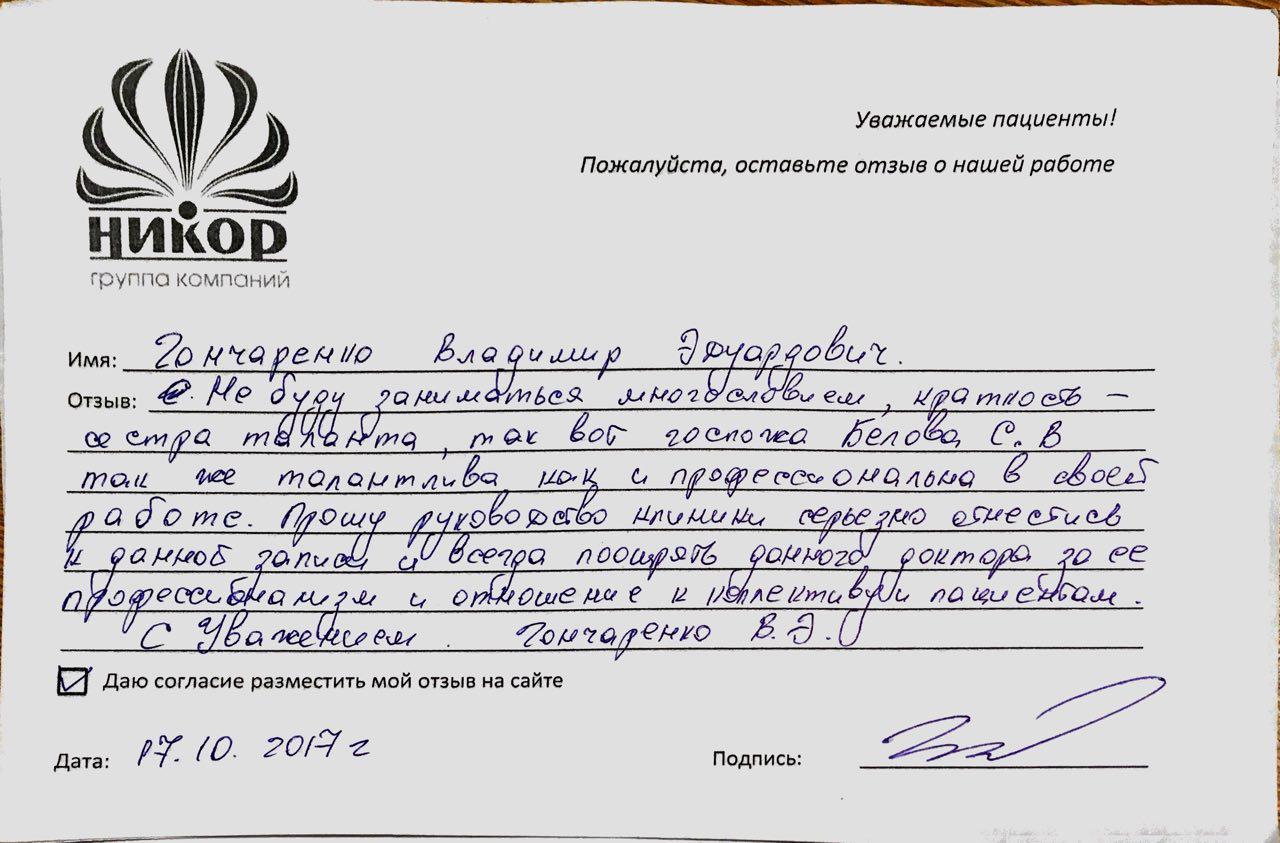 Уважаемые пациенты!
Пожалуйста, оставьте отзыв о нашей работе
НИКОР
группа компаний
Имя: Гончаренко Владимир Эдуардович.
Отзыв: Не буду заниматься многословием, краткость –
сестра таланта, так вот госпожа Белова С. В
так же талантлива как и профессиональна в своей
работе. Прошу руководство клиники серьезно отнестись
к данной записи и всегда поощрять данного доктора за ее
профессионализм и отношение к коллективу и пациентам.
С Уважением. Гончаренко В.Э.
Даю согласие разместить мой отзыв на сайте
Дата: 17.10. 2017 г
Подпись: